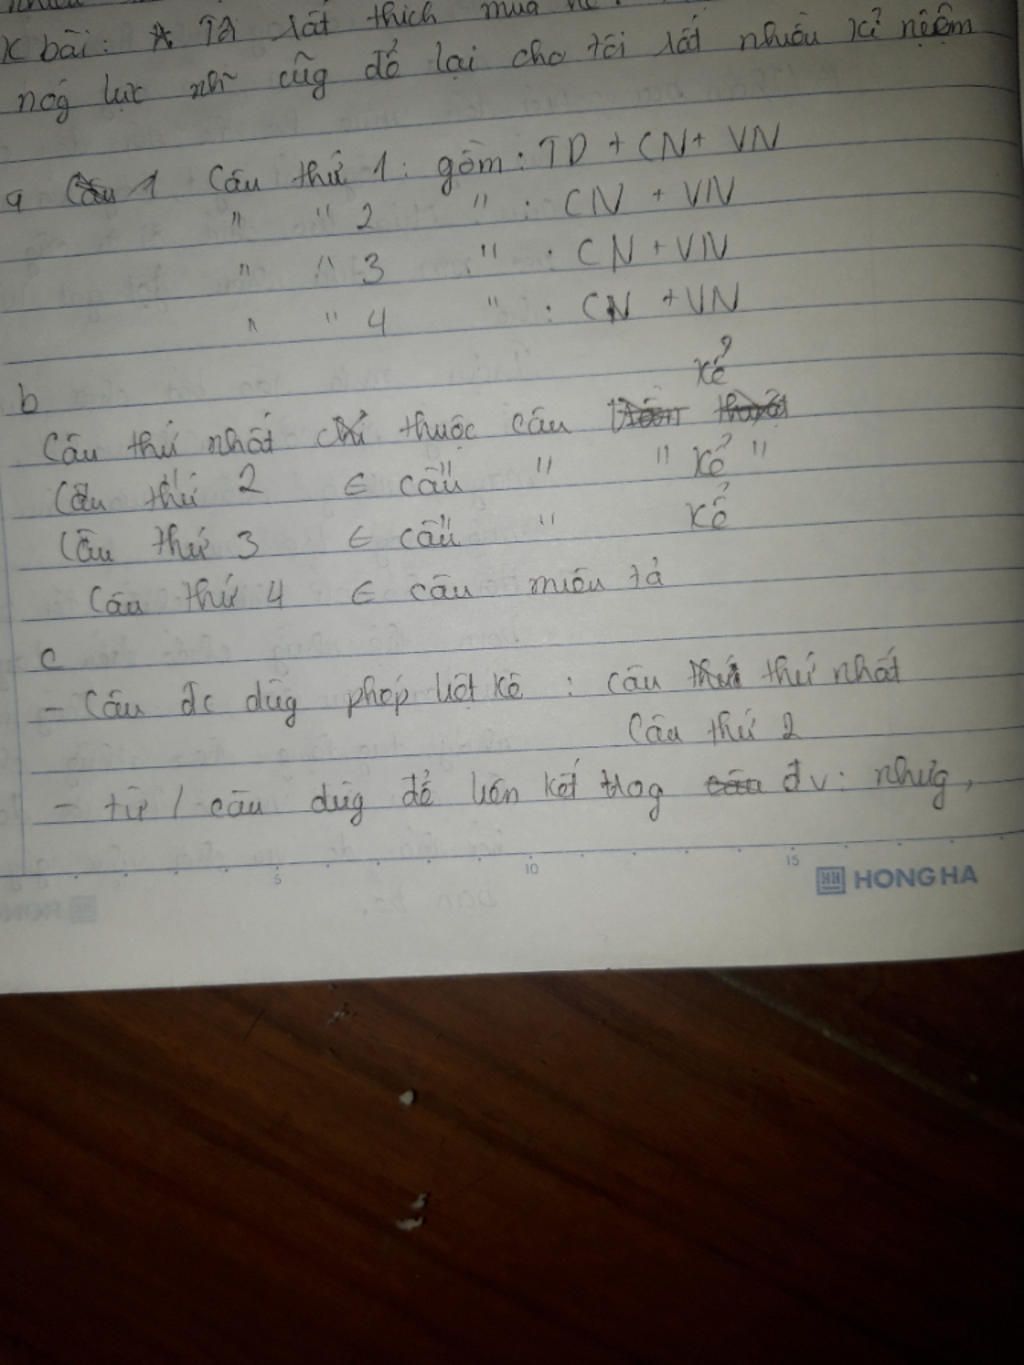 K bài: Tôi rất thích mùa hè
nóg lực nhĩ cũg để lại cho tôi rất nhiều kỉ niệm
a Câu 1 Câu thứ 1: gồm: TD + CN + VN
" " 2 " : CN + VN
" " 3 " : CN + VN
" " 4 " : CN + VN
b
kể
Câu thứ nhất thuộc câu
Câu thứ 2 ∈ câu " " kể "
Câu thứ 3 ∈ câu " kể
Câu thứ 4 ∈ câu miêu tả
c
- Câu đc dùg phép liệt kê : câu thứ nhất
Câu thứ 2
- từ / câu dùg để liên kết trog đv: nhưg,
5 10 15
HH HONG HA